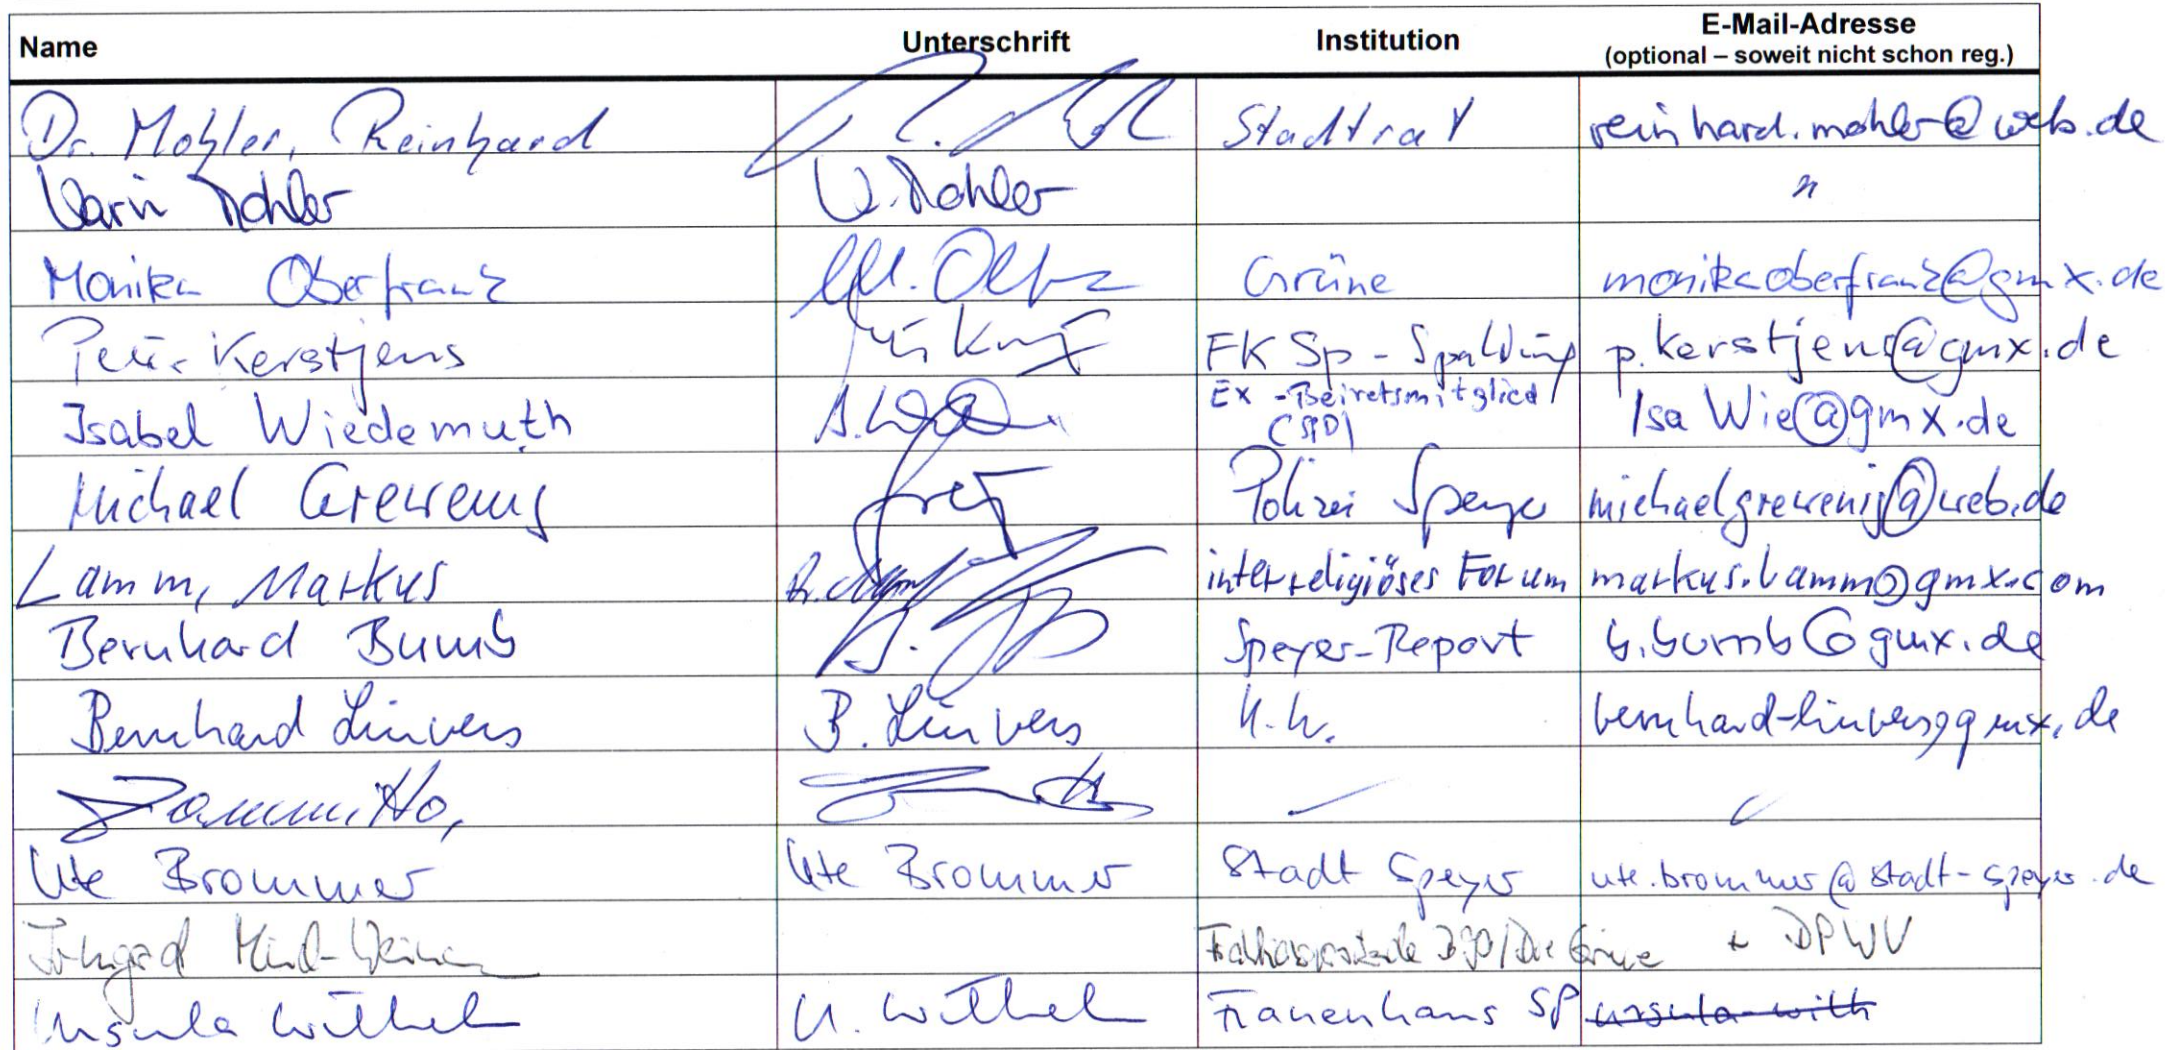 Name Unterschrift Institution E-Mail-Adresse
(optional – soweit nicht schon reg.)
Dr. Mohler, Reinhard Stadtrat reinhard.mohler@web.de
Karin Mohler K. Mohler "
Monika Oberfranz M. Obfz Grüne monikaoberfranz@gmx.de
Peter Kerstjens FK Sp - Spalding p.kerstjens@gmx.de
Isabel Wiedemuth Ex-Beiratsmitglied IsaWie@gmx.de
(SPD)
Michael Grewenig Polizei Speyer michaelgrewenig@web.de
Lamm, Markus interreligiöses Forum markus.lamm@gmx.com
Bernhard Bumb Speyer-Report b.bumb@gmx.de
Bernhard Linvers B. Linvers bernhard-linvers@gmx.de
Ute Brommer Ute Brommer Stadt Speyer ute.brommer@stadt-speyer.de
Irmgard + DPWV
Ursula Withel U. Withel Frauenhaus SP ursula-with